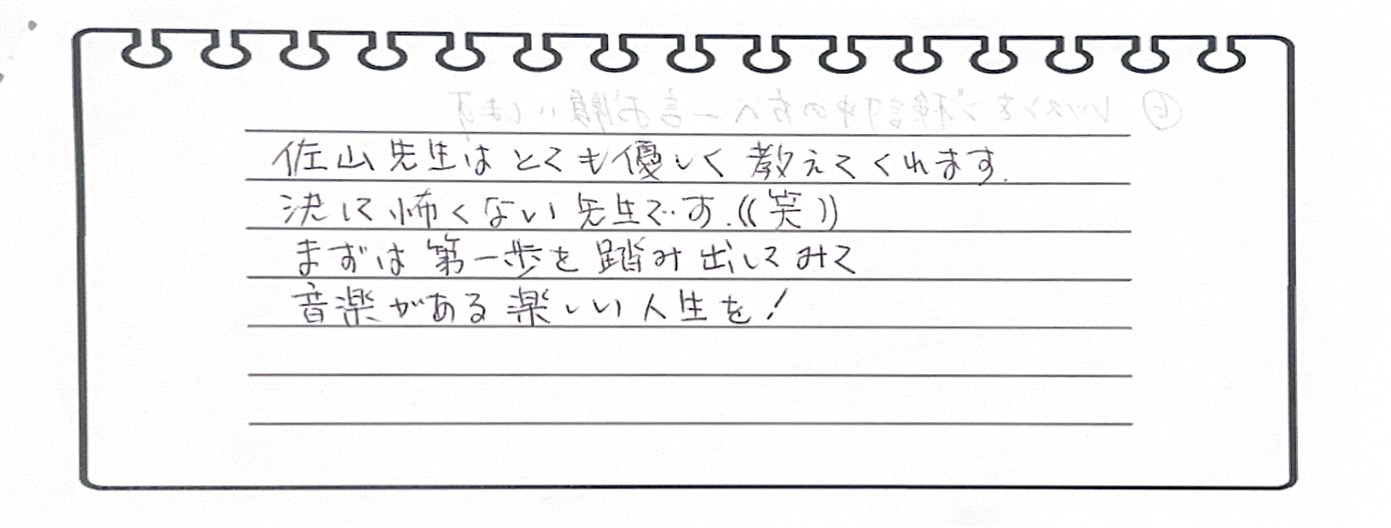 ⑥ レッスンをご検討中の方へ一言お願いします
佐山先生はとても優しく教えてくれます.
決して怖くない先生です.((笑))
まずは第一歩を踏み出してみて
音楽がある楽しい人生を!